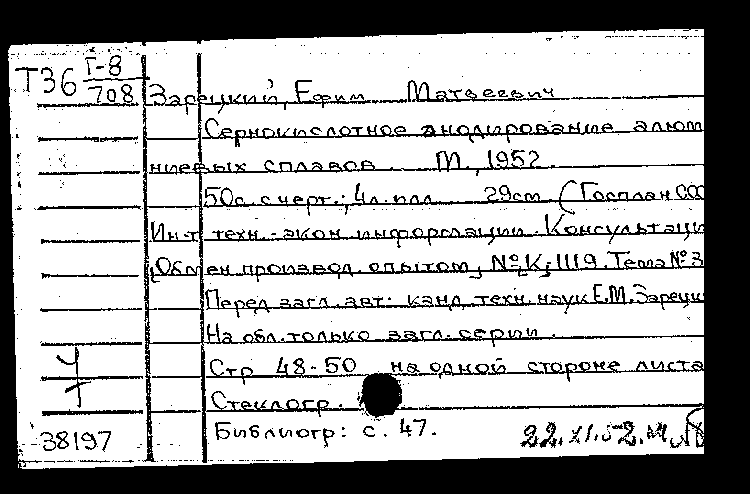 Т36 Г-8
708 Зарецкий, Ефим Матвеевич
Сернокислотное анодирование алюм
ниевых сплавов. М, 1952.
50с. с черт.; 4л. илл 29см (Госплан ССС
Ин-т техн.-экон информации. Консультаци
Обмен производ. опытом, № К, 1119. Тема № 3
Перед загл. авт: канд. техн. наук Е.М. Зарецки
На обл. только загл. серии.
Стр 48-50 на одной стороне листа
Стеклогр.
38197 Библиогр: с. 47.
22.XI.52.м.